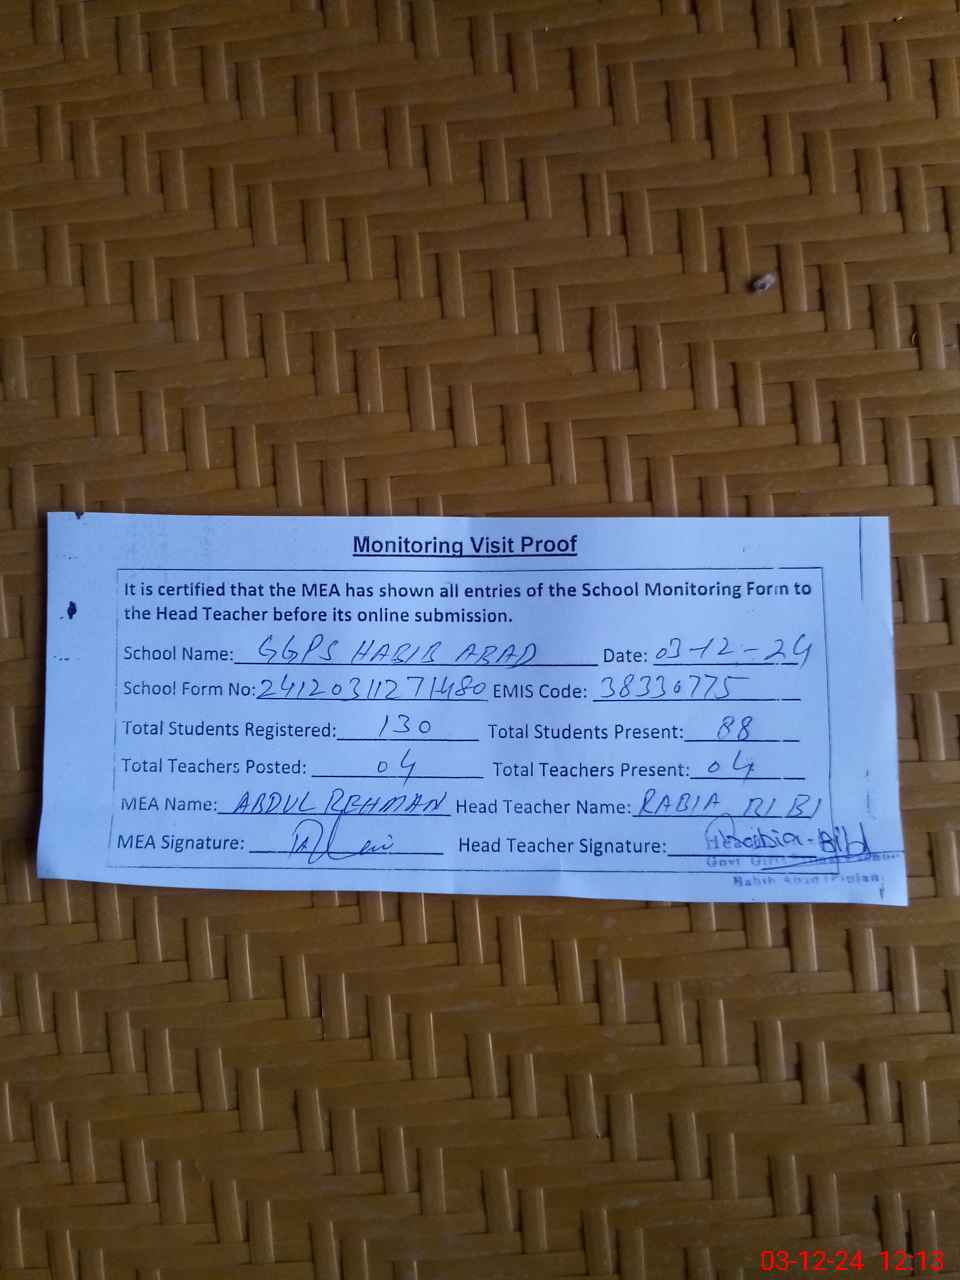 Monitoring Visit Proof
It is certified that the MEA has shown all entries of the School Monitoring Form to
the Head Teacher before its online submission.
School Name: GGPS HABIB ABAD Date: 03-12-24
School Form No: 24120311271480 EMIS Code: 38330775
Total Students Registered: 130 Total Students Present: 88
Total Teachers Posted: 04 Total Teachers Present: 04
MEA Name: ABDUL REHMAN Head Teacher Name: RABIA BIBI
MEA Signature: Head Teacher Signature: Rabia-Bibi
Govt Girls
Habib Abad
03-12-24 12:13